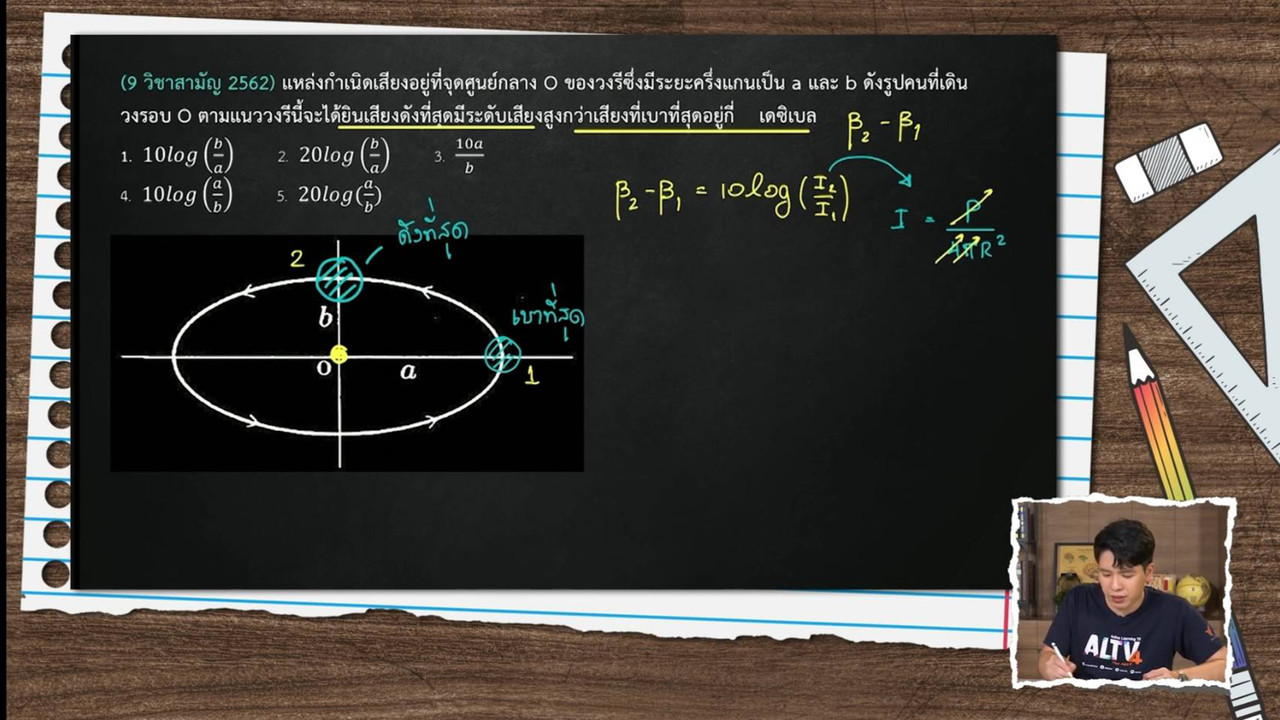 (9 วิชาสามัญ 2562) แหล่งกำเนิดเสียงอยู่ที่จุดศูนย์กลาง O ของวงรีซึ่งมีระยะครึ่งแกนเป็น a และ b ดังรูปคนที่เดิน
วงรอบ O ตามแนววงรีนี้จะได้ยินเสียงดังที่สุดมีระดับเสียงสูงกว่าเสียงที่เบาที่สุดอยู่กี่ เดซิเบล
β₂ - β₁
1. 10log (b/a) 2. 20log (b/a) 3. 10a/b
4. 10log (a/b) 5. 20log(a/b)
β₂ - β₁ = 10log (I₂/I₁)
I = P/4πR²
ดังที่สุด
2
b
เบาที่สุด
O a
1
ALTV4